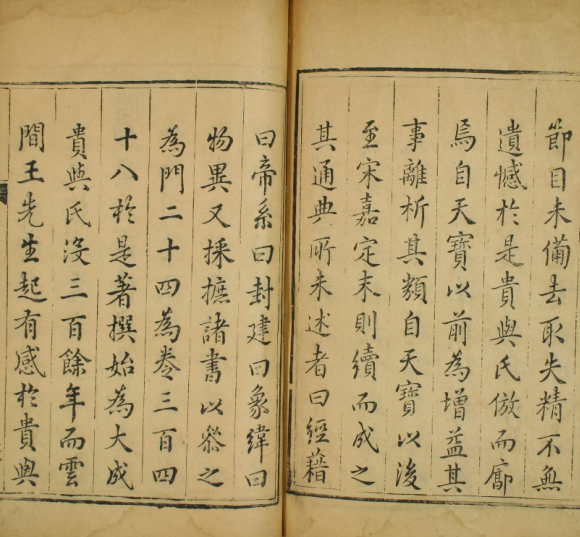 節目未備去取失精不無
遺憾於是貴與氏倣而廓
焉自天寶以前為增益其
事離析其類自天寶以後
至宋嘉定末則續而成之
其通典所未述者曰經籍
曰帝系曰封建曰象緯曰
物異又採摭諸書以叅之
為門二十四為卷三百四
十八於是著撰始為大成
貴與氏沒三百餘年而雲
間王先生起有感於貴與